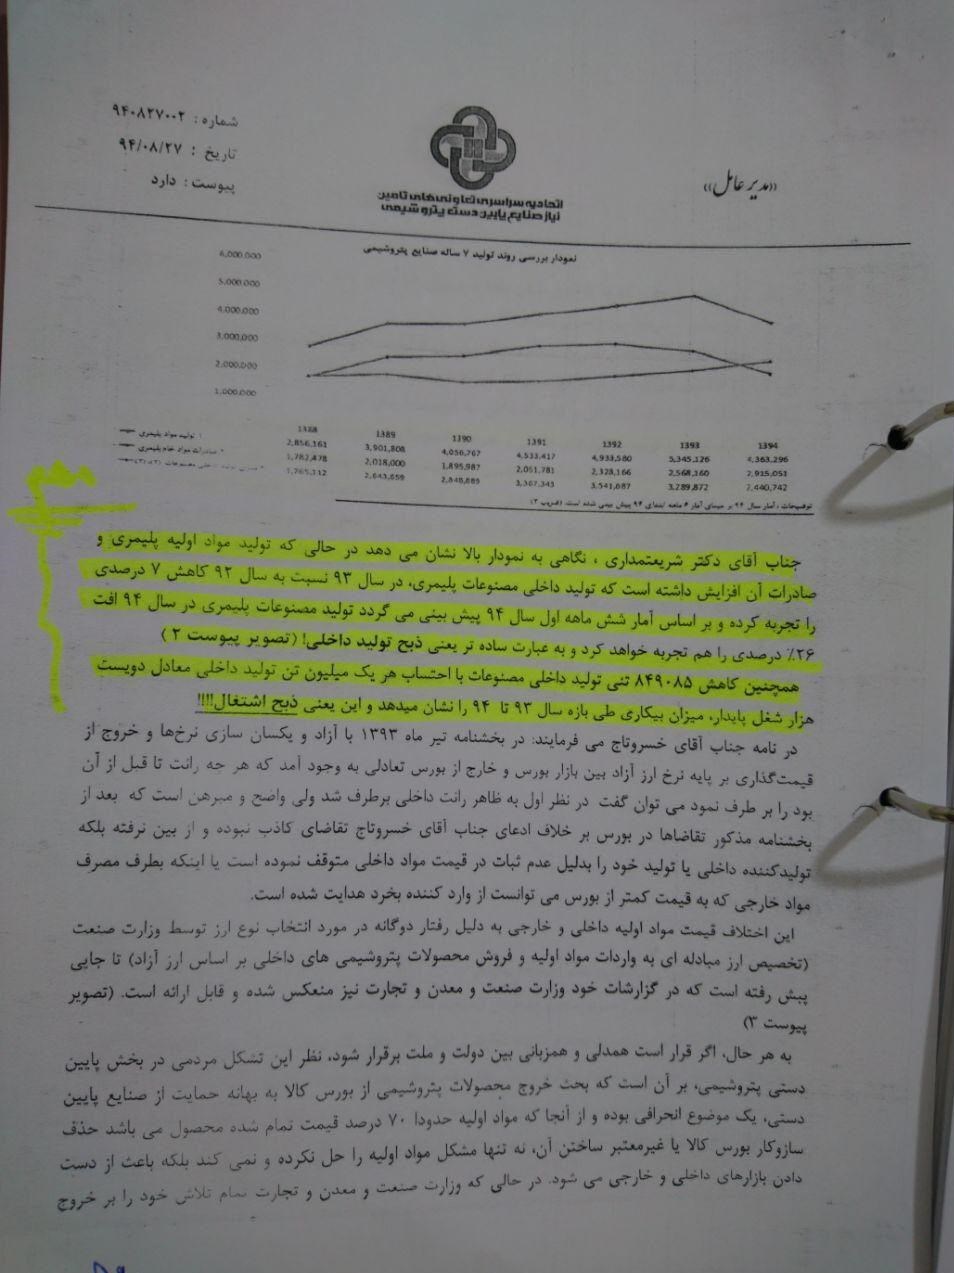 شماره : ۹۴۰۸۲۷۰۰۲
تاریخ : ۹۴/۰۸/۲۷
پیوست : دارد
اتحادیه سراسری تعاونی‌های تامین
نیاز صنایع پایین دستی پتروشیمی
«مدیر عامل»
نمودار بررسی روند تولید ۷ ساله صنایع پتروشیمی
6,000,000
5,000,000
4,000,000
3,000,000
2,000,000
1,000,000
1388 1389 1390 1391 1392 1393 1394
تولید مواد پلیمری 2,856,161 3,901,808 4,056,767 4,533,417 4,933,580 5,345,126 4,363,296
صادرات مواد خام پلیمری 1,782,478 2,018,000 1,895,987 2,061,781 2,328,166 2,568,160 2,915,051
3,367,343 3,541,687 3,289,872 2,440,742
توضیحات : آمار سال ۹۴ بر مبنای آمار ۶ ماهه ابتدای ۹۴ پیش بینی شده است. (ضریب ۲)
جناب آقای دکتر شریعتمداری ، نگاهی به نمودار بالا نشان می دهد در حالی که تولید مواد اولیه پلیمری و
صادرات آن افزایش داشته است که تولید داخلی مصنوعات پلیمری، در سال ۹۳ نسبت به سال ۹۲ کاهش ۷ درصدی
را تجربه کرده و بر اساس آمار شش ماهه اول سال ۹۴ پیش بینی می گردد تولید مصنوعات پلیمری در سال ۹۴ افت
۲۶٪ درصدی را هم تجربه خواهد کرد و به عبارت ساده تر یعنی ذبح تولید داخلی! (تصویر پیوست ۲ )
همچنین کاهش ۸۴۹۰۸۵ تنی تولید داخلی مصنوعات با احتساب هر یک میلیون تن تولید داخلی معادل دویست
هزار شغل پایدار، میزان بیکاری طی بازه سال ۹۳ تا ۹۴ را نشان میدهد و این یعنی ذبح اشتغال!!!!
در نامه جناب آقای خسروتاج می فرمایند: در بخشنامه تیر ماه ۱۳۹۳ با آزاد و یکسان سازی نرخ‌ها و خروج از
قیمت‌گذاری بر پایه نرخ ارز آزاد بین بازار بورس و خارج از بورس تعادلی به وجود آمد که هر چه رانت تا قبل از آن
بود را بر طرف نمود می توان گفت در نظر اول به ظاهر رانت داخلی برطرف شد ولی واضح و مبرهن است که بعد از
بخشنامه مذکور تقاضاها در بورس بر خلاف ادعای جناب آقای خسروتاج تقاضای کاذب نبوده و از بین نرفته بلکه
تولیدکننده داخلی یا تولید خود را بدلیل عدم ثبات در قیمت مواد داخلی متوقف نموده است یا اینکه بطرف مصرف
مواد خارجی که به قیمت کمتر از بورس می توانست از وارد کننده بخرد هدایت شده است.
این اختلاف قیمت مواد اولیه داخلی و خارجی به دلیل رفتار دوگانه در مورد انتخاب نوع ارز توسط وزارت صنعت
(تخصیص ارز مبادله ای به واردات مواد اولیه و فروش محصولات پتروشیمی های داخلی بر اساس ارز آزاد) تا جایی
پیش رفته است که در گزارشات خود وزارت صنعت و معدن و تجارت نیز منعکس شده و قابل ارائه است. (تصویر
پیوست ۳)
به هر حال، اگر قرار است همدلی و همزبانی بین دولت و ملت برقرار شود، نظر این تشکل مردمی در بخش پایین
دستی پتروشیمی، بر آن است که بحث خروج محصولات پتروشیمی از بورس کالا به بهانه حمایت از صنایع پایین
دستی، یک موضوع انحرافی بوده و از آنجا که مواد اولیه حدودا ۷۰ درصد قیمت تمام شده محصول می باشد حذف
سازوکار بورس کالا یا غیرمعتبر ساختن آن، نه تنها مشکل مواد اولیه را حل نکرده و نمی کند بلکه باعث از دست
دادن بازارهای داخلی و خارجی می شود. در حالی که وزارت صنعت و معدن و تجارت تمام تلاش خود را بر خروج